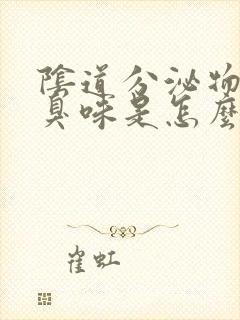 陰道分泌物
臭味是怎麼
崔虹